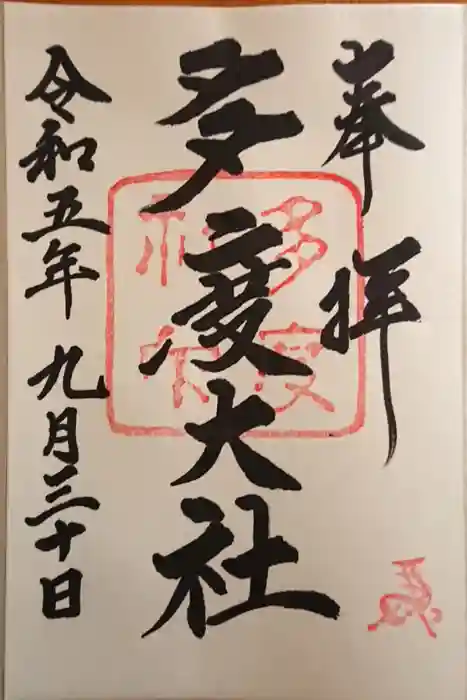 奉拝
多度大社
令和五年九月三十日
多度
神社